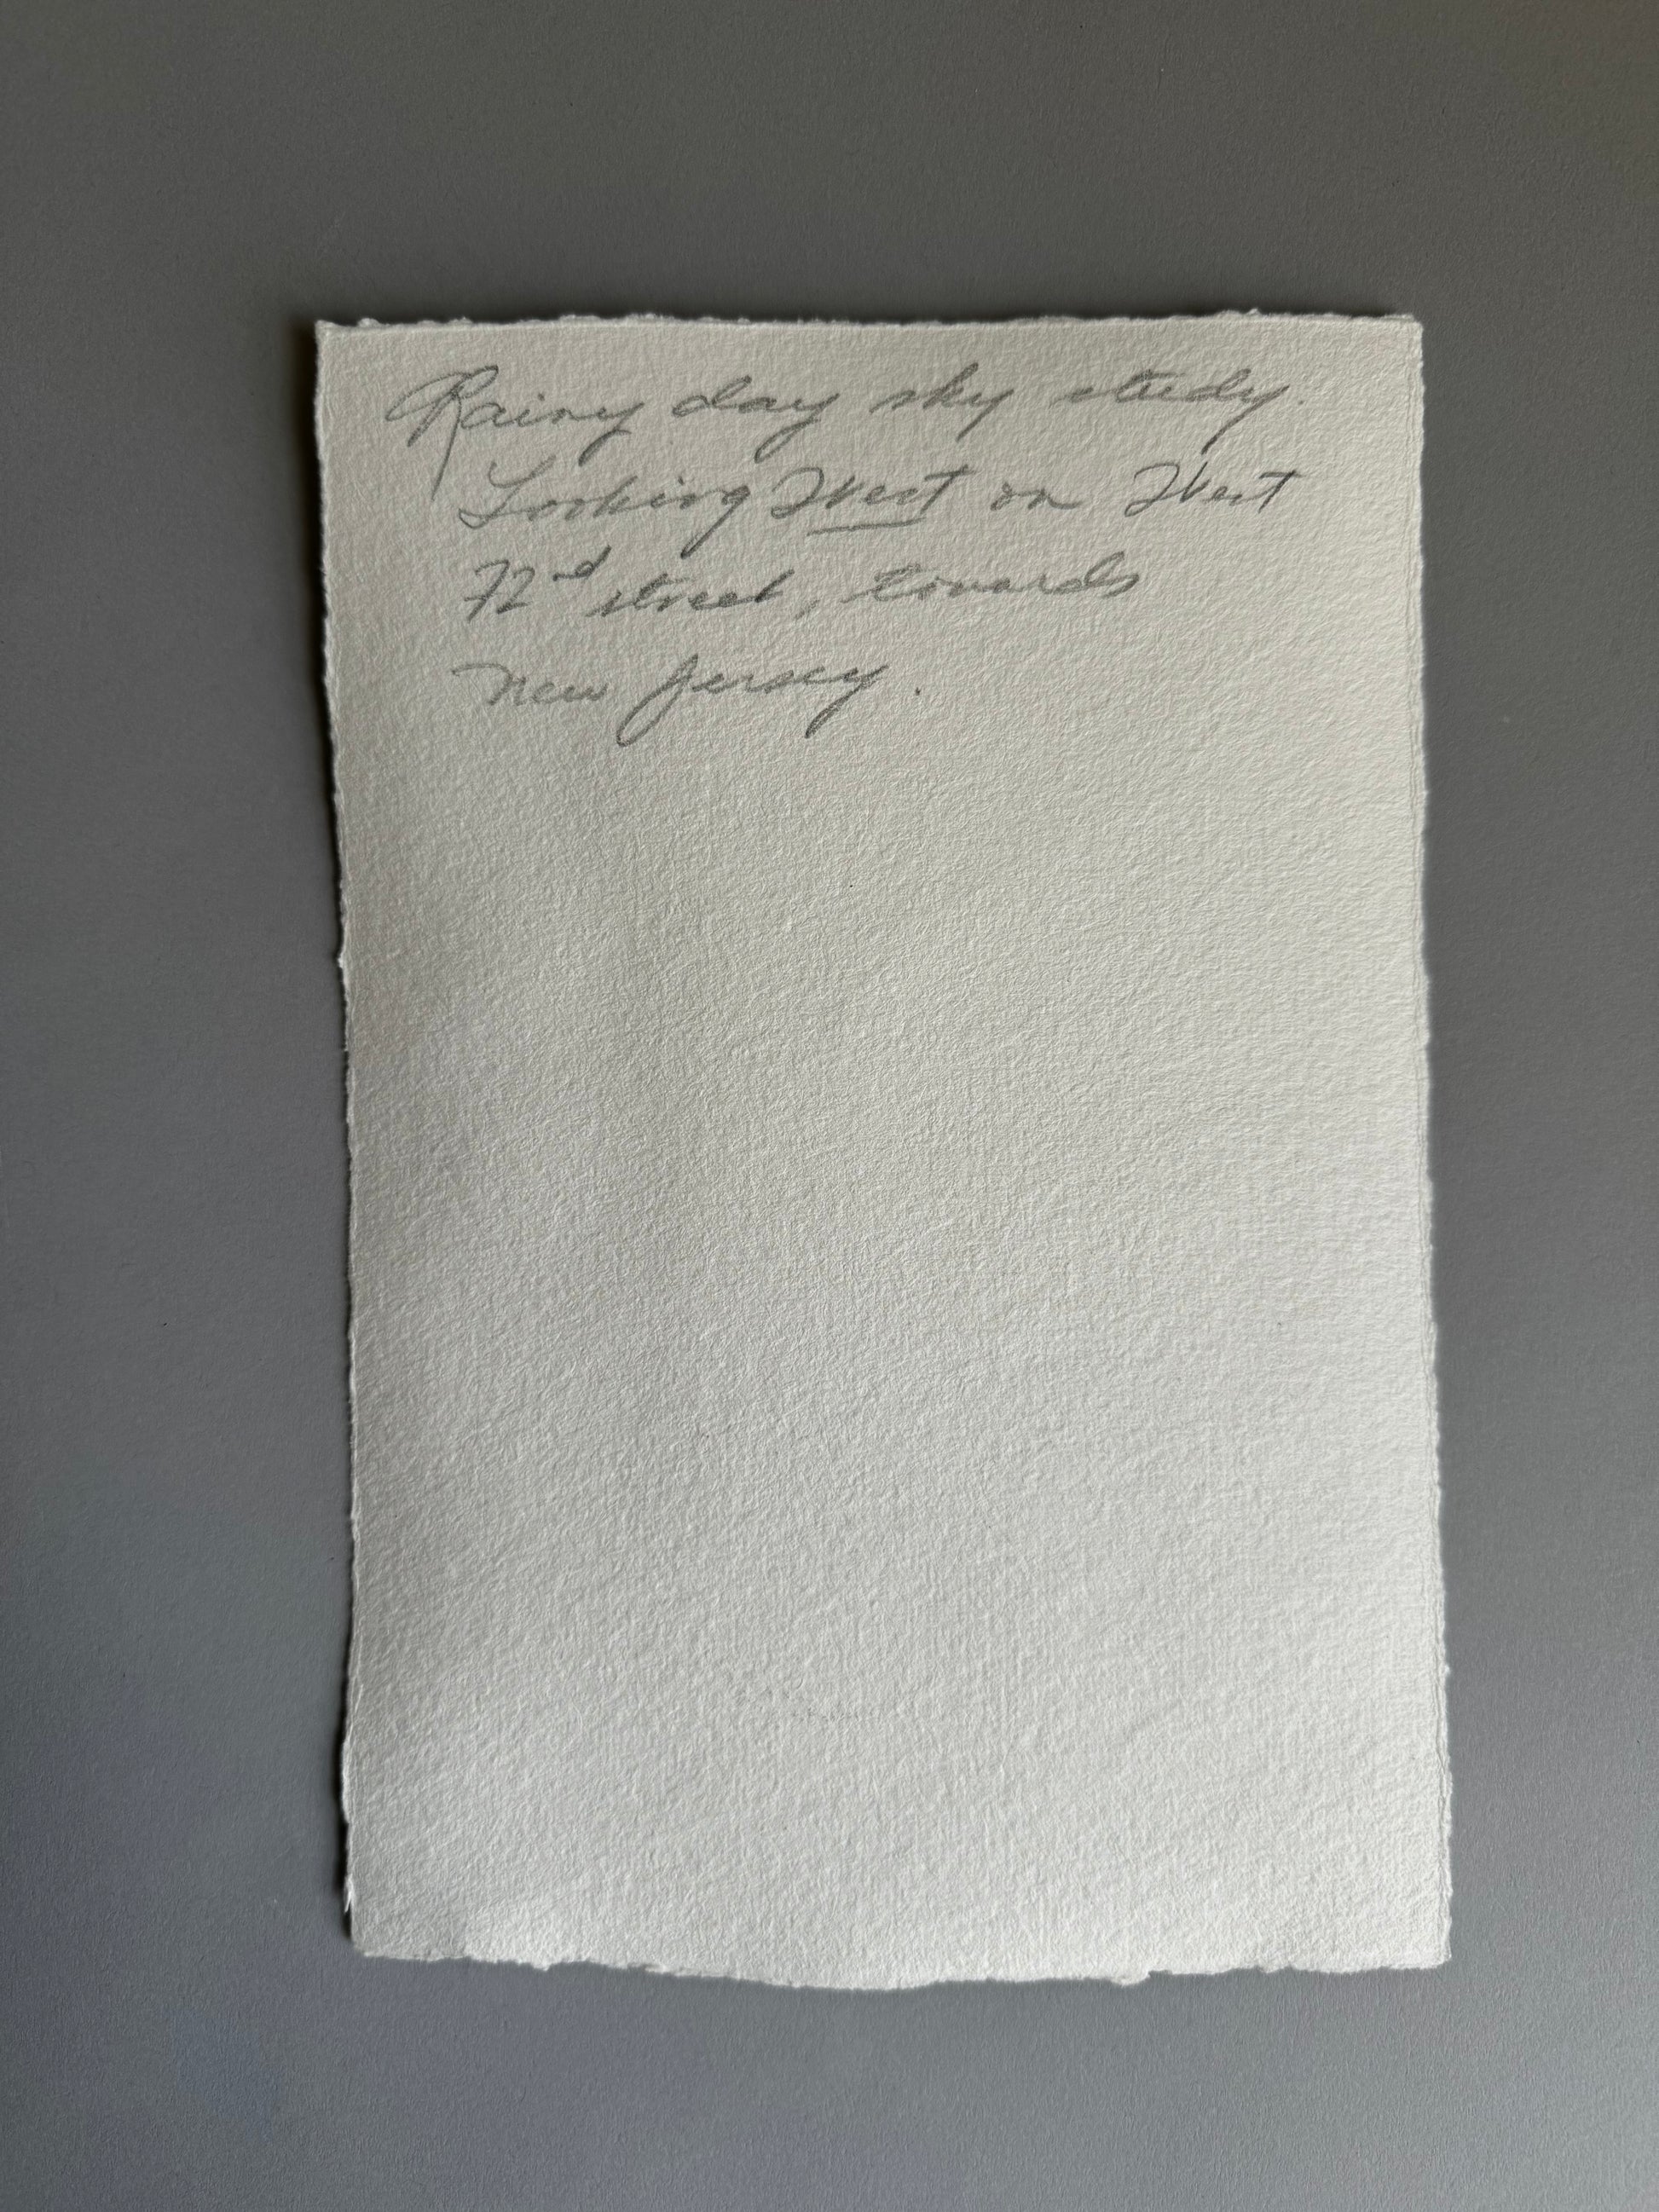 Rainy day sky study.
Looking West on West
72nd street, towards
New Jersey.